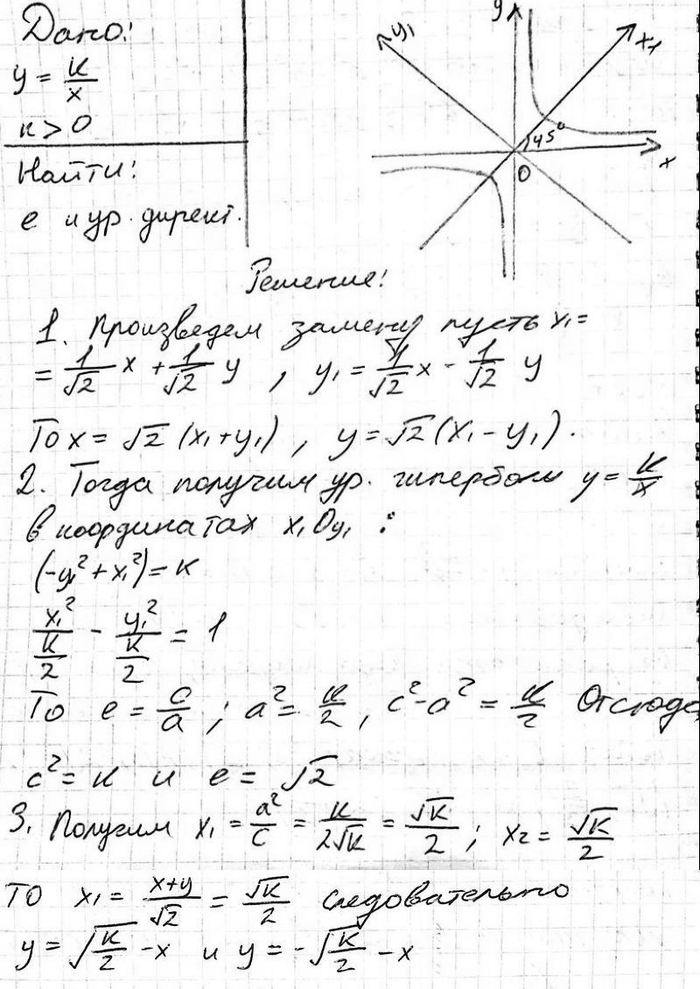 Дано:
y = k/x
k > 0
Найти:
e и ур. директ.
y
y₁
x₁
45°
O
x
Решение:
1. Произведем замену пусть x₁ =
= 1/√2 x + 1/√2 y , y₁ = 1/√2 x - 1/√2 y
То x = √2 (x₁ + y₁) , y = √2 (x₁ - y₁).
2. Тогда получим ур. гиперболы y = k/x
в координатах x₁Oy₁ :
(-y₁² + x₁²) = k
x₁²/(k/2) - y₁²/(k/2) = 1
То e = c/a ; a² = k/2 , c² - a² = k/2 Отсюда
c² = k и e = √2
3. Получим x₁ = a²/c = k/(2√k) = √k/2 ; x₂ = √k/2
то x₁ = (x+y)/√2 = √k/2 следовательно
y = √(k/2) - x и y = -√(k/2) - x